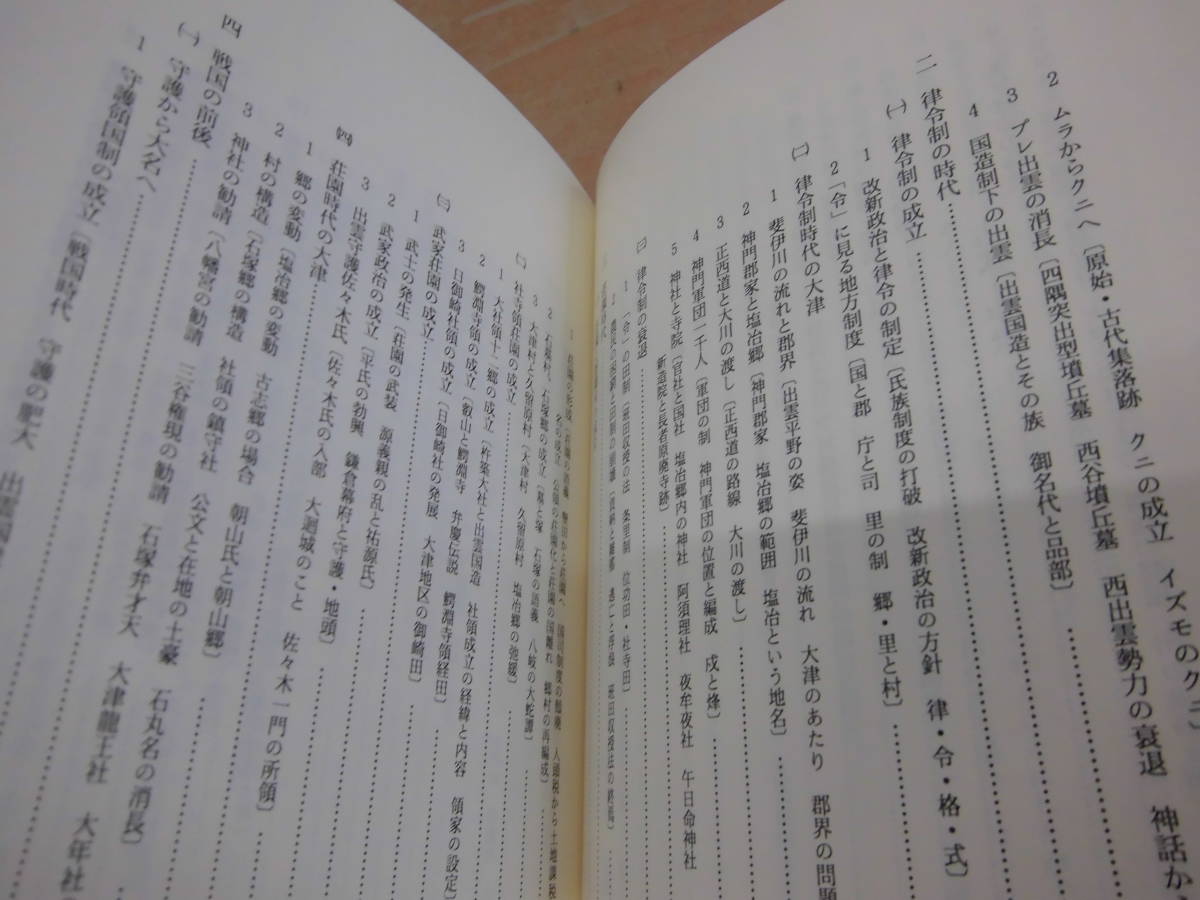 2 ムラからクニへ〔原始・古代集落跡 クニの成立 イズモのクニ〕
3 プレ出雲の消長〔四隅突出型墳丘墓 西谷墳丘墓 西出雲勢力の衰退 神話か
4 国造制下の出雲〔出雲国造とその族 御名代と品部〕
二 律令制の時代
㈠ 律令制の成立
1 改新政治と律令の制定〔氏族制度の打破 改新政治の方針 律・令・格・式〕
2 「令」に見る地方制度〔国と郡 庁と司 里の制 郷・里と村〕
㈡ 律令制時代の大津
1 斐伊川の流れと郡界〔出雲平野の姿 斐伊川の流れ 大津のあたり 郡界の問題
2 神門郡家と塩冶郷〔神門郡家 塩冶郷の範囲 塩冶という地名〕
3 正西道と大川の渡し〔正西道の路線 大川の渡し〕
4 神門軍団二千人〔軍団の制 神門軍団の位置と編成 戍と烽〕
5 神社と寺院〔官社と国社 塩冶郷内の神社 阿須理社 夜牟夜社 午日命神社
新造院と長者原廃寺跡〕
㈢ 律令制の衰退
1 「令」の田制〔班田収授の法 条里制 位功田・社寺田〕
2 農民の困窮と田制の崩壊〔貢納と雑徭 逃亡と浮浪 班田収授法の終焉〕
1 荘園の形成〔荘園の意義 墾田から荘園へ 国司制度の頽廃 人頭税から土地課税
名の成立 公領の荘園化と荘園の国離れ 郷村の再編成〕
2 石墓村、石塚郷の成立〔墓と塚 石塚の語義 八岐の大蛇譚〕
3 大津村と久留原村〔大津村 久留原村 塩冶郷の弛緩〕
㈡ 社寺領荘園の成立
1 大社領十二郷の成立〔杵築大社と出雲国造 社領成立の経緯と内容 領家の設定〕
2 鰐淵寺領の成立〔叡山と鰐淵寺 弁慶伝説 鰐淵寺領経田〕
3 日御碕社領の成立〔日御碕社の発展 大津地区の御崎田〕
㈢ 武家荘園の成立
1 武士の発生〔荘園の武装 源義親の乱と祐源氏〕
2 武家政治の成立〔平氏の勃興 鎌倉幕府と守護・地頭〕
3 出雲守護佐々木氏〔佐々木氏の入部 大廻城のこと 佐々木一門の所領〕
㈣ 荘園時代の大津
1 郷の変動〔塩冶郷の変動 古志郷の場合 朝山氏と朝山郷〕
2 村の構造〔石塚郷の構造 社領の鎮守社 公文と在地の土豪 石丸名の消長〕
3 神社の勧請〔八幡宮の勧請 三谷権現の勧請 石塚弁才天 大津龍王社 大年社
四 戦国の前後
㈠ 守護から大名へ
1 守護領国制の成立〔戦国時代 守護の肥大 出雲国